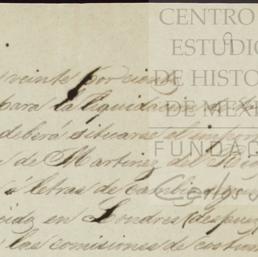 CENTRO
ESTUDIO
DE HISTO
DE MEXI
FUNDA
Carlos
veinte por ciento
para la liquidacion
deberá situarse el impor
de Martinez del Rio
ó letras de cambio
en Londres (despues
las comisiones de costum